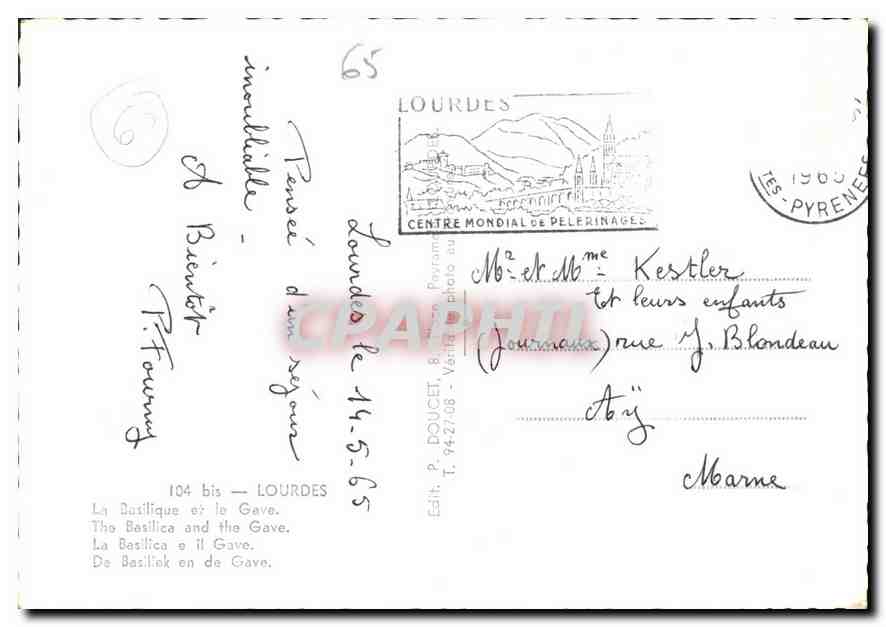 65
6
Lourdes le 14-5-65
Pensée d'un séjour
inoubliable -
A Bientôt
P. Fourny
LOURDES
CENTRE MONDIAL DE PELERINAGES
1965
TES-PYRENEES
Mr et Mme Kestler
Et leurs enfants
(Journaux) rue J. Blondeau
Aÿ
Marne
Edit. P. DOUCET, B.
T. 94-27-08 - Vérita photo au
104 bis — LOURDES
La Basilique et le Gave.
The Basilica and the Gave.
La Basilica e il Gave.
De Basiliek en de Gave.
CPAPHIL